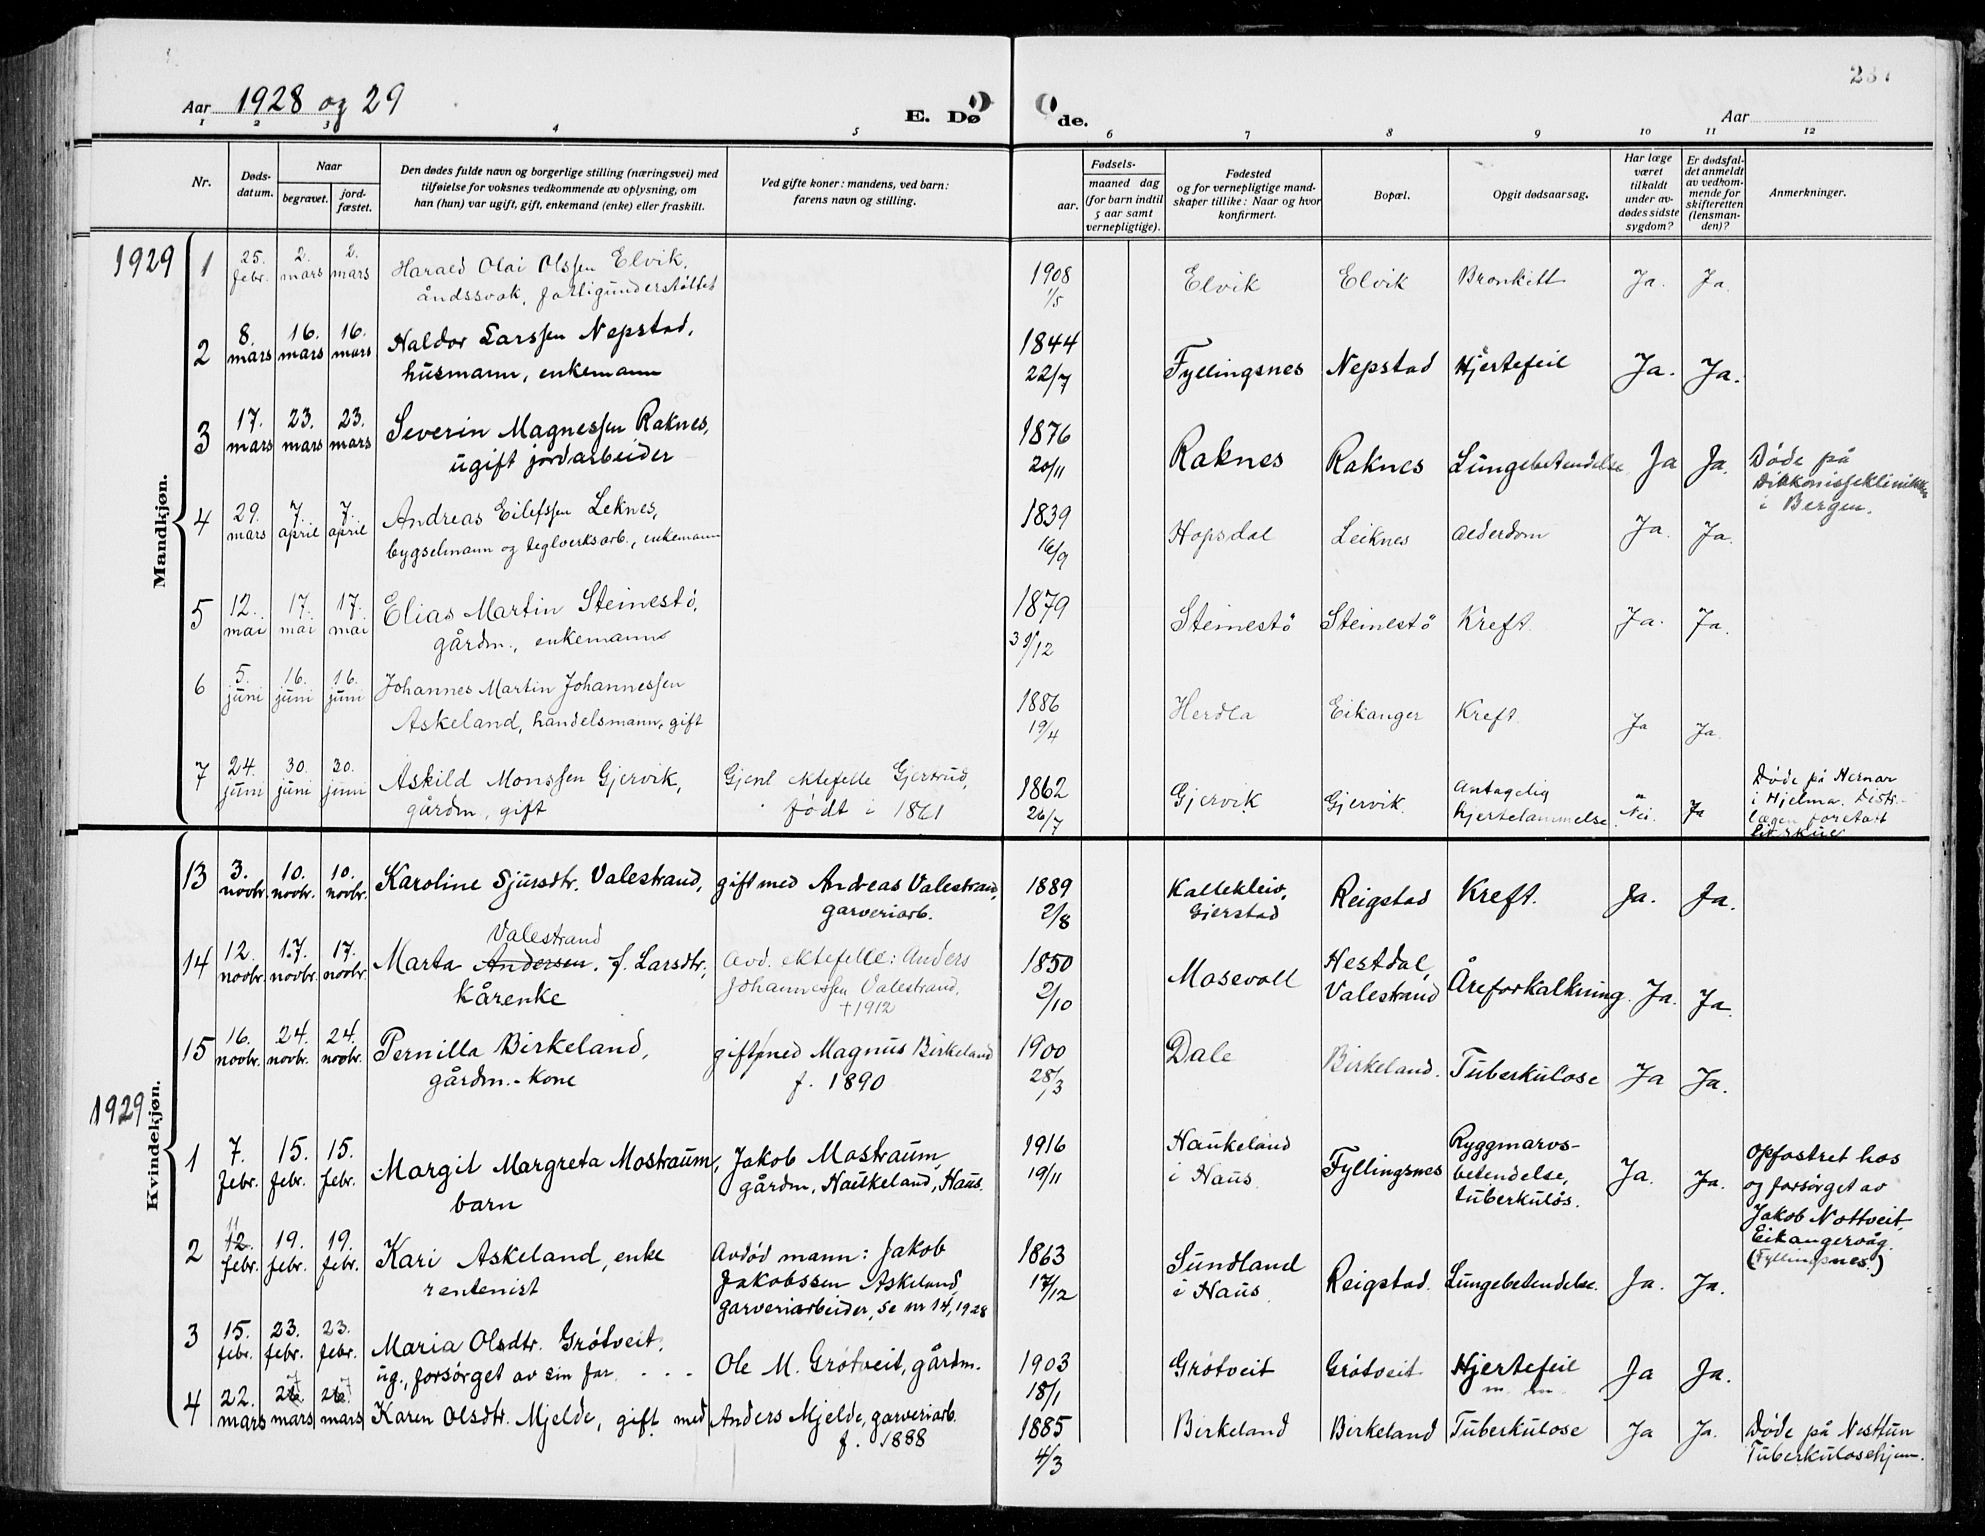 Aar 1928 og 29
E. Dø
de.
Aar
1 2 3 4 5 6 7 8 9 10 11 12
Nr.
Døds-
datum.
Naar
begravet.
jord-
fæstet.
Den dødes fulde navn og borgerlige stilling (næringsvei) med
tilføielse for voksnes vedkommende av oplysning, om
han (hun) var ugift, gift, enkemand (enke) eller fraskilt.
Ved gifte koner: mandens, ved barn:
farens navn og stilling.
Fødsels-
aar.
maaned dag
(for barn indtil
5 aar samt
vernepligtige).
Fødested
og for vernepligtige mand-
skaper tillike: Naar og hvor
konfirmert.
Bopæl.
Opgit dødsaarsag.
Har læge
været
tilkaldt
under av-
dødes sidste
sygdom?
Er dødsfal-
det anmeldt
av vedkom-
mende for
skifteretten
(lensman-
den)?
Anmerkninger.
Mandkjøn.
1929
1 25. febr. 2. mars 2. mars Harald Olai Olssen Elvik, 1908 1/5 Elvik Elvik Bronkitt Ja. Ja.
åndssvak, fattigunderstøttet
2 8. mars 16. mars 16. mars Haldor Larssen Nepstad, 1844 22/7 Fyllingsnes Nepstad Hjertefeil Ja. Ja.
husmann, enkemann
3 17. mars 23. mars 23. mars Severin Magnessen Raknes, 1876 20/11 Raknes Raknes Lungebetendelse Ja Ja. Døde på
ugift jordarbeider Diakonisseklinikken
i Bergen.
4 29. mars 7. april 7. april Andreas Eilefssen Leknes, 1839 16/9 Hopsdal Leiknes Alderdom Ja. Ja.
bygselmann og teglverksarb., enkemann
5 12. mai 17. mai 17. mai Elias Martin Steinestø, 1879 /12 Steinestø Steinestø Kreft. Ja. Ja.
gårdm., enkemann
6 5. juni 16. juni 16. juni Johannes Martin Johannessen 1886 19/4 Herdla Eikanger Kreft. Ja Ja.
Askeland, handelsmann, gift
7 24. juni 30. juni 30. juni Askild Monssen Gjervik, Gjenl ektefelle Gjertrud, 1862 26/7 Gjervik Gjervik. Antagelig Nei. Ja Døde på Hernar
gårdm, gift født i 1861 hjertelammelse i Hjelma. Distr.-
lægen foretatt
likskue
Kvindekjøn.
13 3. novbr. 10. novbr. 10. novbr. Karoline Sjursdtr. Valestrand, gift med Andreas Valestrand, 1889 2/8 Kallekleiv, Reigstad Kreft. Ja. Ja.
garveriarb. Gjerstad
Valestrand
14 12. novbr. 17. novbr. 17. novbr. Marta Andersen. f. Larsdtr, Avd. ektefelle: Anders 1850 2/10 Mosevoll Hestdal, Åreforkalkning. Ja. Ja.
Kårenke Johannessen Valestrand, Valestrand
+1912
15 16. novbr. 24. novbr. 24. novbr. Pernilla Birkeland, gift med Magnus Birkeland 1900 28/3 Dale Birkeland. Tuberkulose Ja Ja.
gårdm.-kone f. 1890
1929
1 7. febr. 15. febr. 15. febr. Margit Margreta Mostraum, Jakob Mostraum, 1916 19/11 Haukeland Fyllingsnes Ryggmarvs- Ja. Ja. Opfostret hos
barn gårdm, Haukeland, Haus. i Haus. betendelse, og forsørget av
tuberkuløs. Jakob Nottveit,
Eikangervåg.
(Fyllingsnes.)
11
2 12. febr. 19. febr. 19. febr. Kari Askeland, enke Avdød mann: Jakob 1863 17/12 Sundland Reigstad. Lungebetendelse. Ja. Ja.
rentenist Jakobssen Askeland, i Haus
garveriarbeider, se nr 14, 1928
3 15. febr. 23. febr. 23. febr. Maria Olsdtr. Grøtveit, Ole M. Grøtveit, gårdm. 1903 18/1 Grøtveit Grøtveit Hjertefeil Ja Ja.
ug., forsørget av sin far. . . . m. m.
4 22. mars 27 mars 27 mars Karen Olsdtr. Mjelde, gift med Anders Mjelde, garveriarb. 1885 4/3 Birkeland Birkeland Tuberkulose Ja Ja. Døde på Nesttun
f. 1888 Tuberkulosehjem.